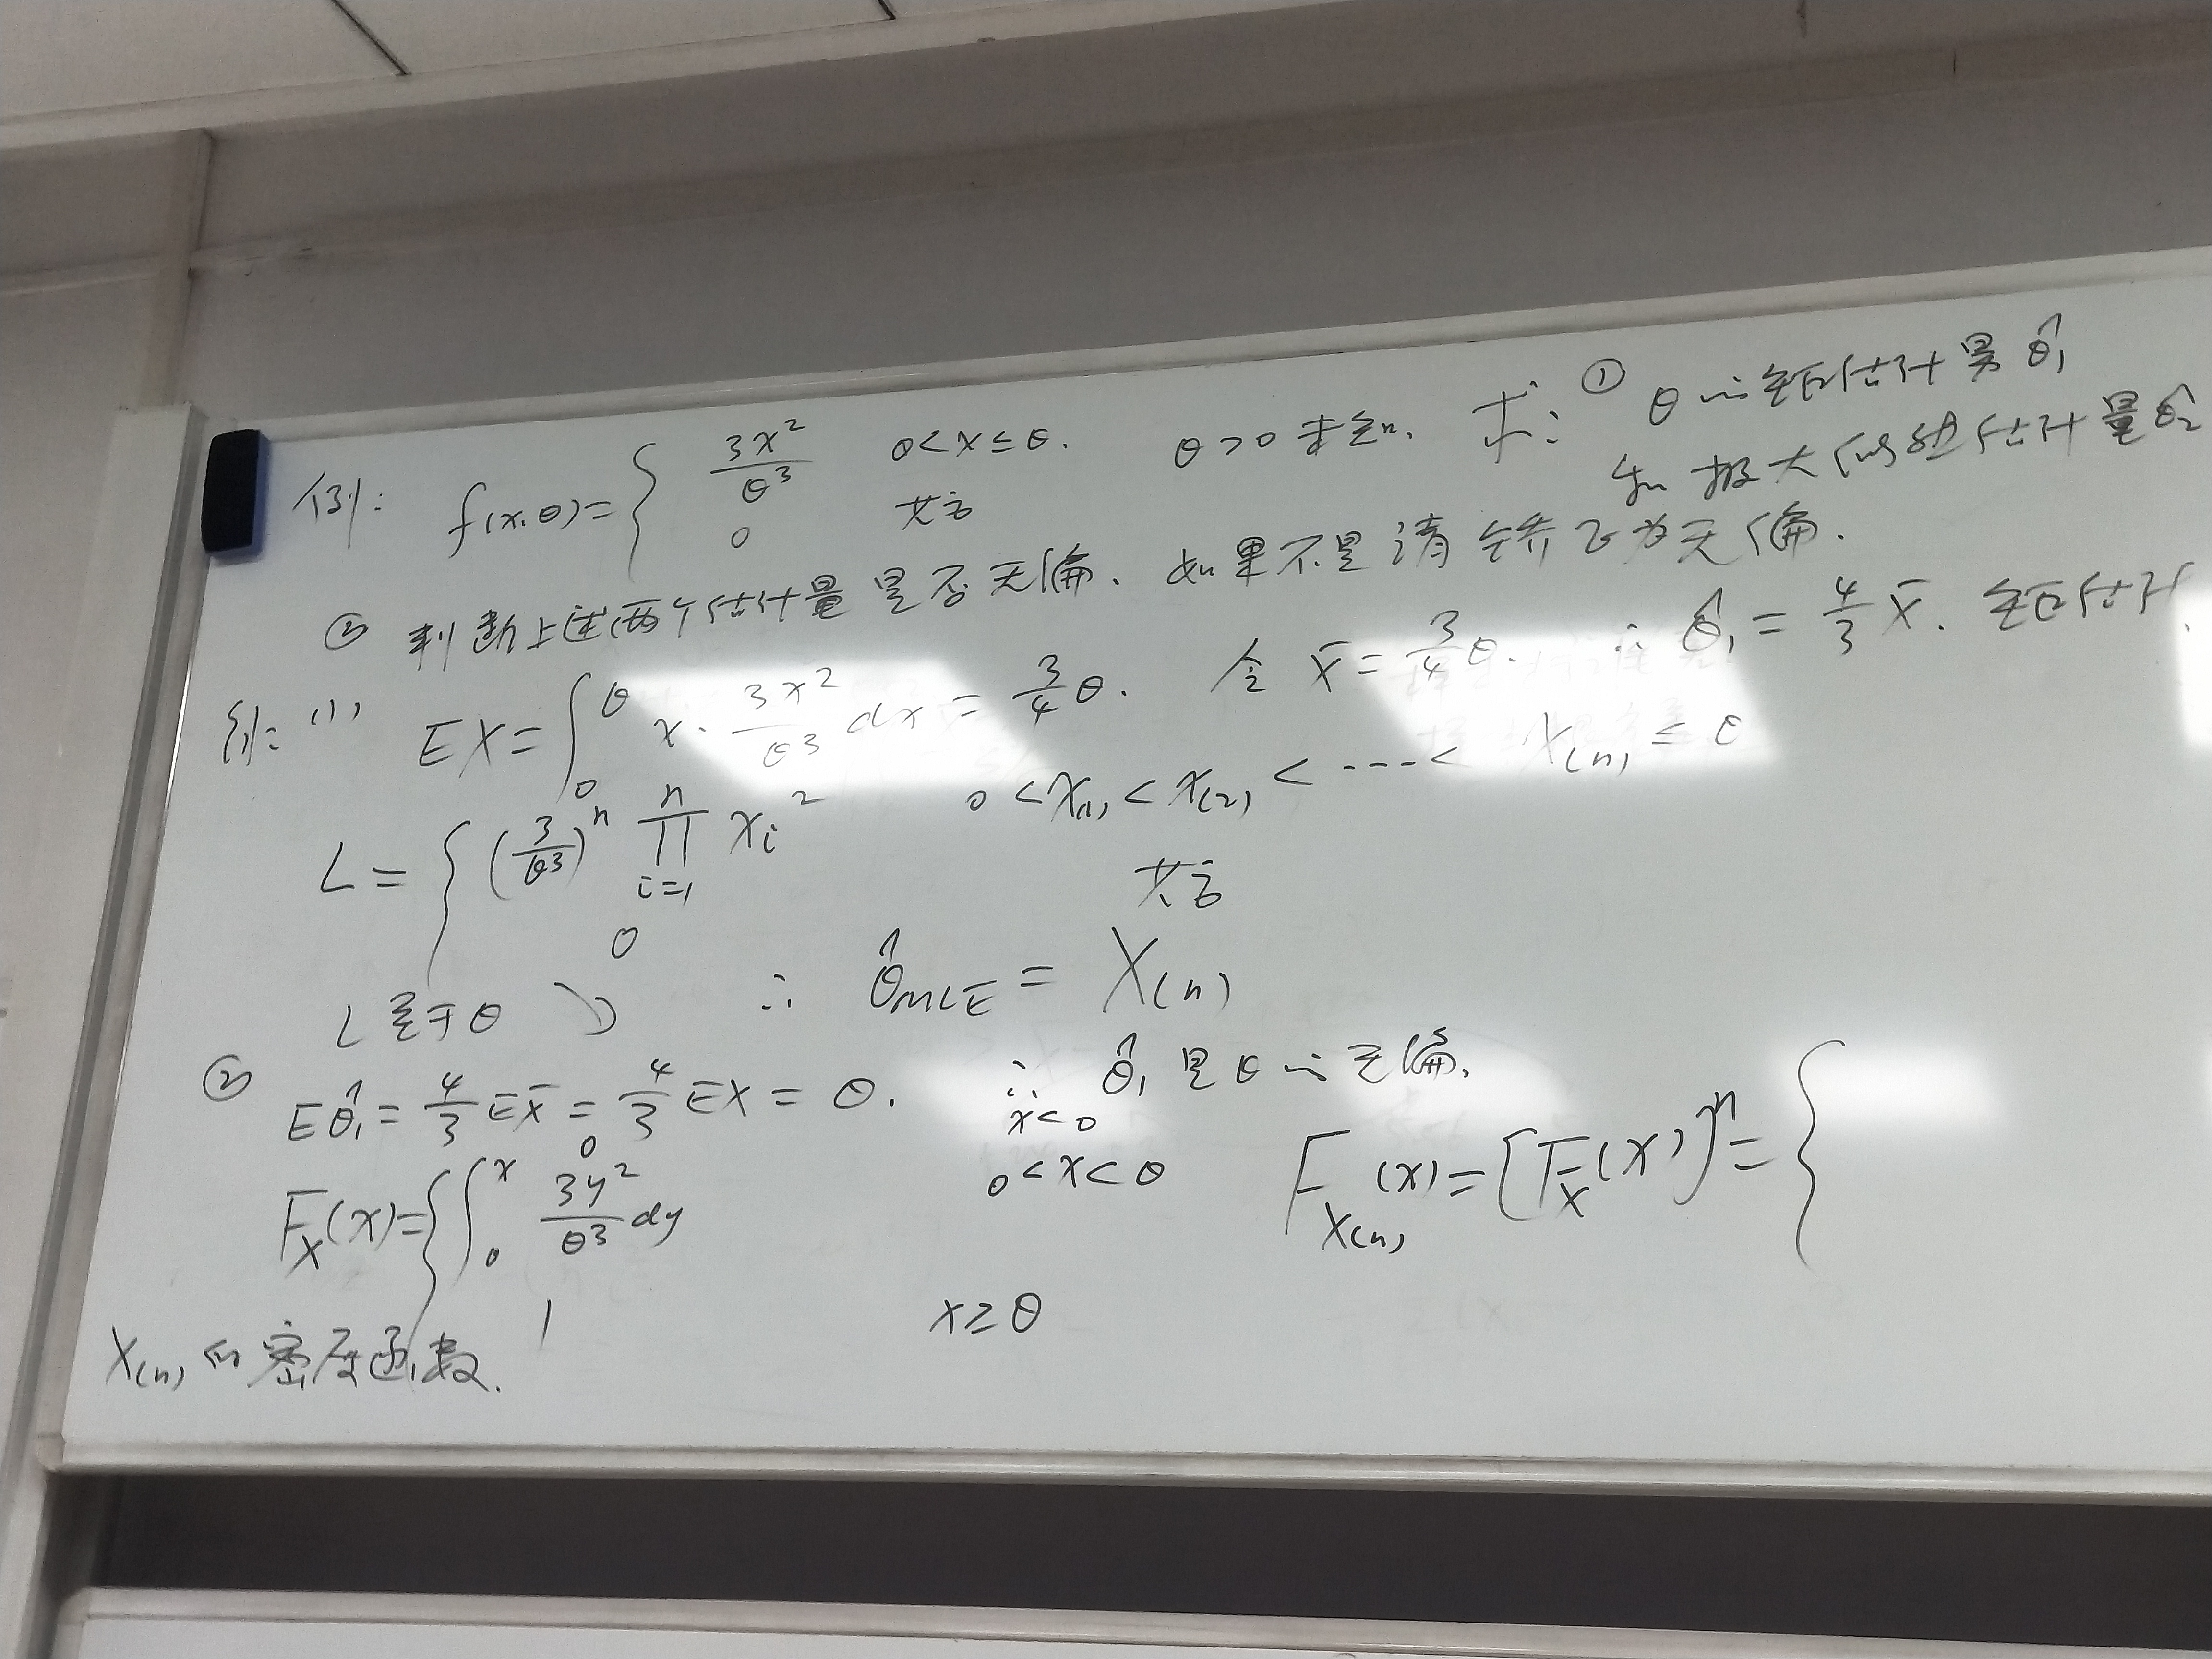 例: f(x,θ)={ 3x²/θ³ 0<x≤θ. θ>0 未知. 求: ① θ的矩估计量 θ̂₁
0 其它 和极大似然估计量 θ̂₂
② 判断上述两个估计量是否无偏. 如果不是请矫正为无偏.
解: (1) EX = ∫₀^θ x·3x²/θ³ dx = 3/4 θ. 令 X̄ = 3/4 θ. ∴ θ̂₁ = 4/3 X̄. 矩估计
L = { (3/θ³)ⁿ ∏ᵢ₌₁ⁿ xᵢ² 0<x₍₁₎<x₍₂₎<---< X₍ₙ₎ ≤ θ
0 其它
L 关于 θ ↘ ∴ θ̂MLE = X₍ₙ₎
② Eθ̂₁ = 4/3 EX̄ = 4/3 EX = θ. ∴ θ̂₁ 是 θ 的无偏.
0 x<0
F_X(x)={ ∫₀ˣ 3y²/θ³ dy 0<x<θ F_X₍ₙ₎(x) = [F_X(x)]ⁿ = {
1 x≥θ
X₍ₙ₎ 的密度函数.